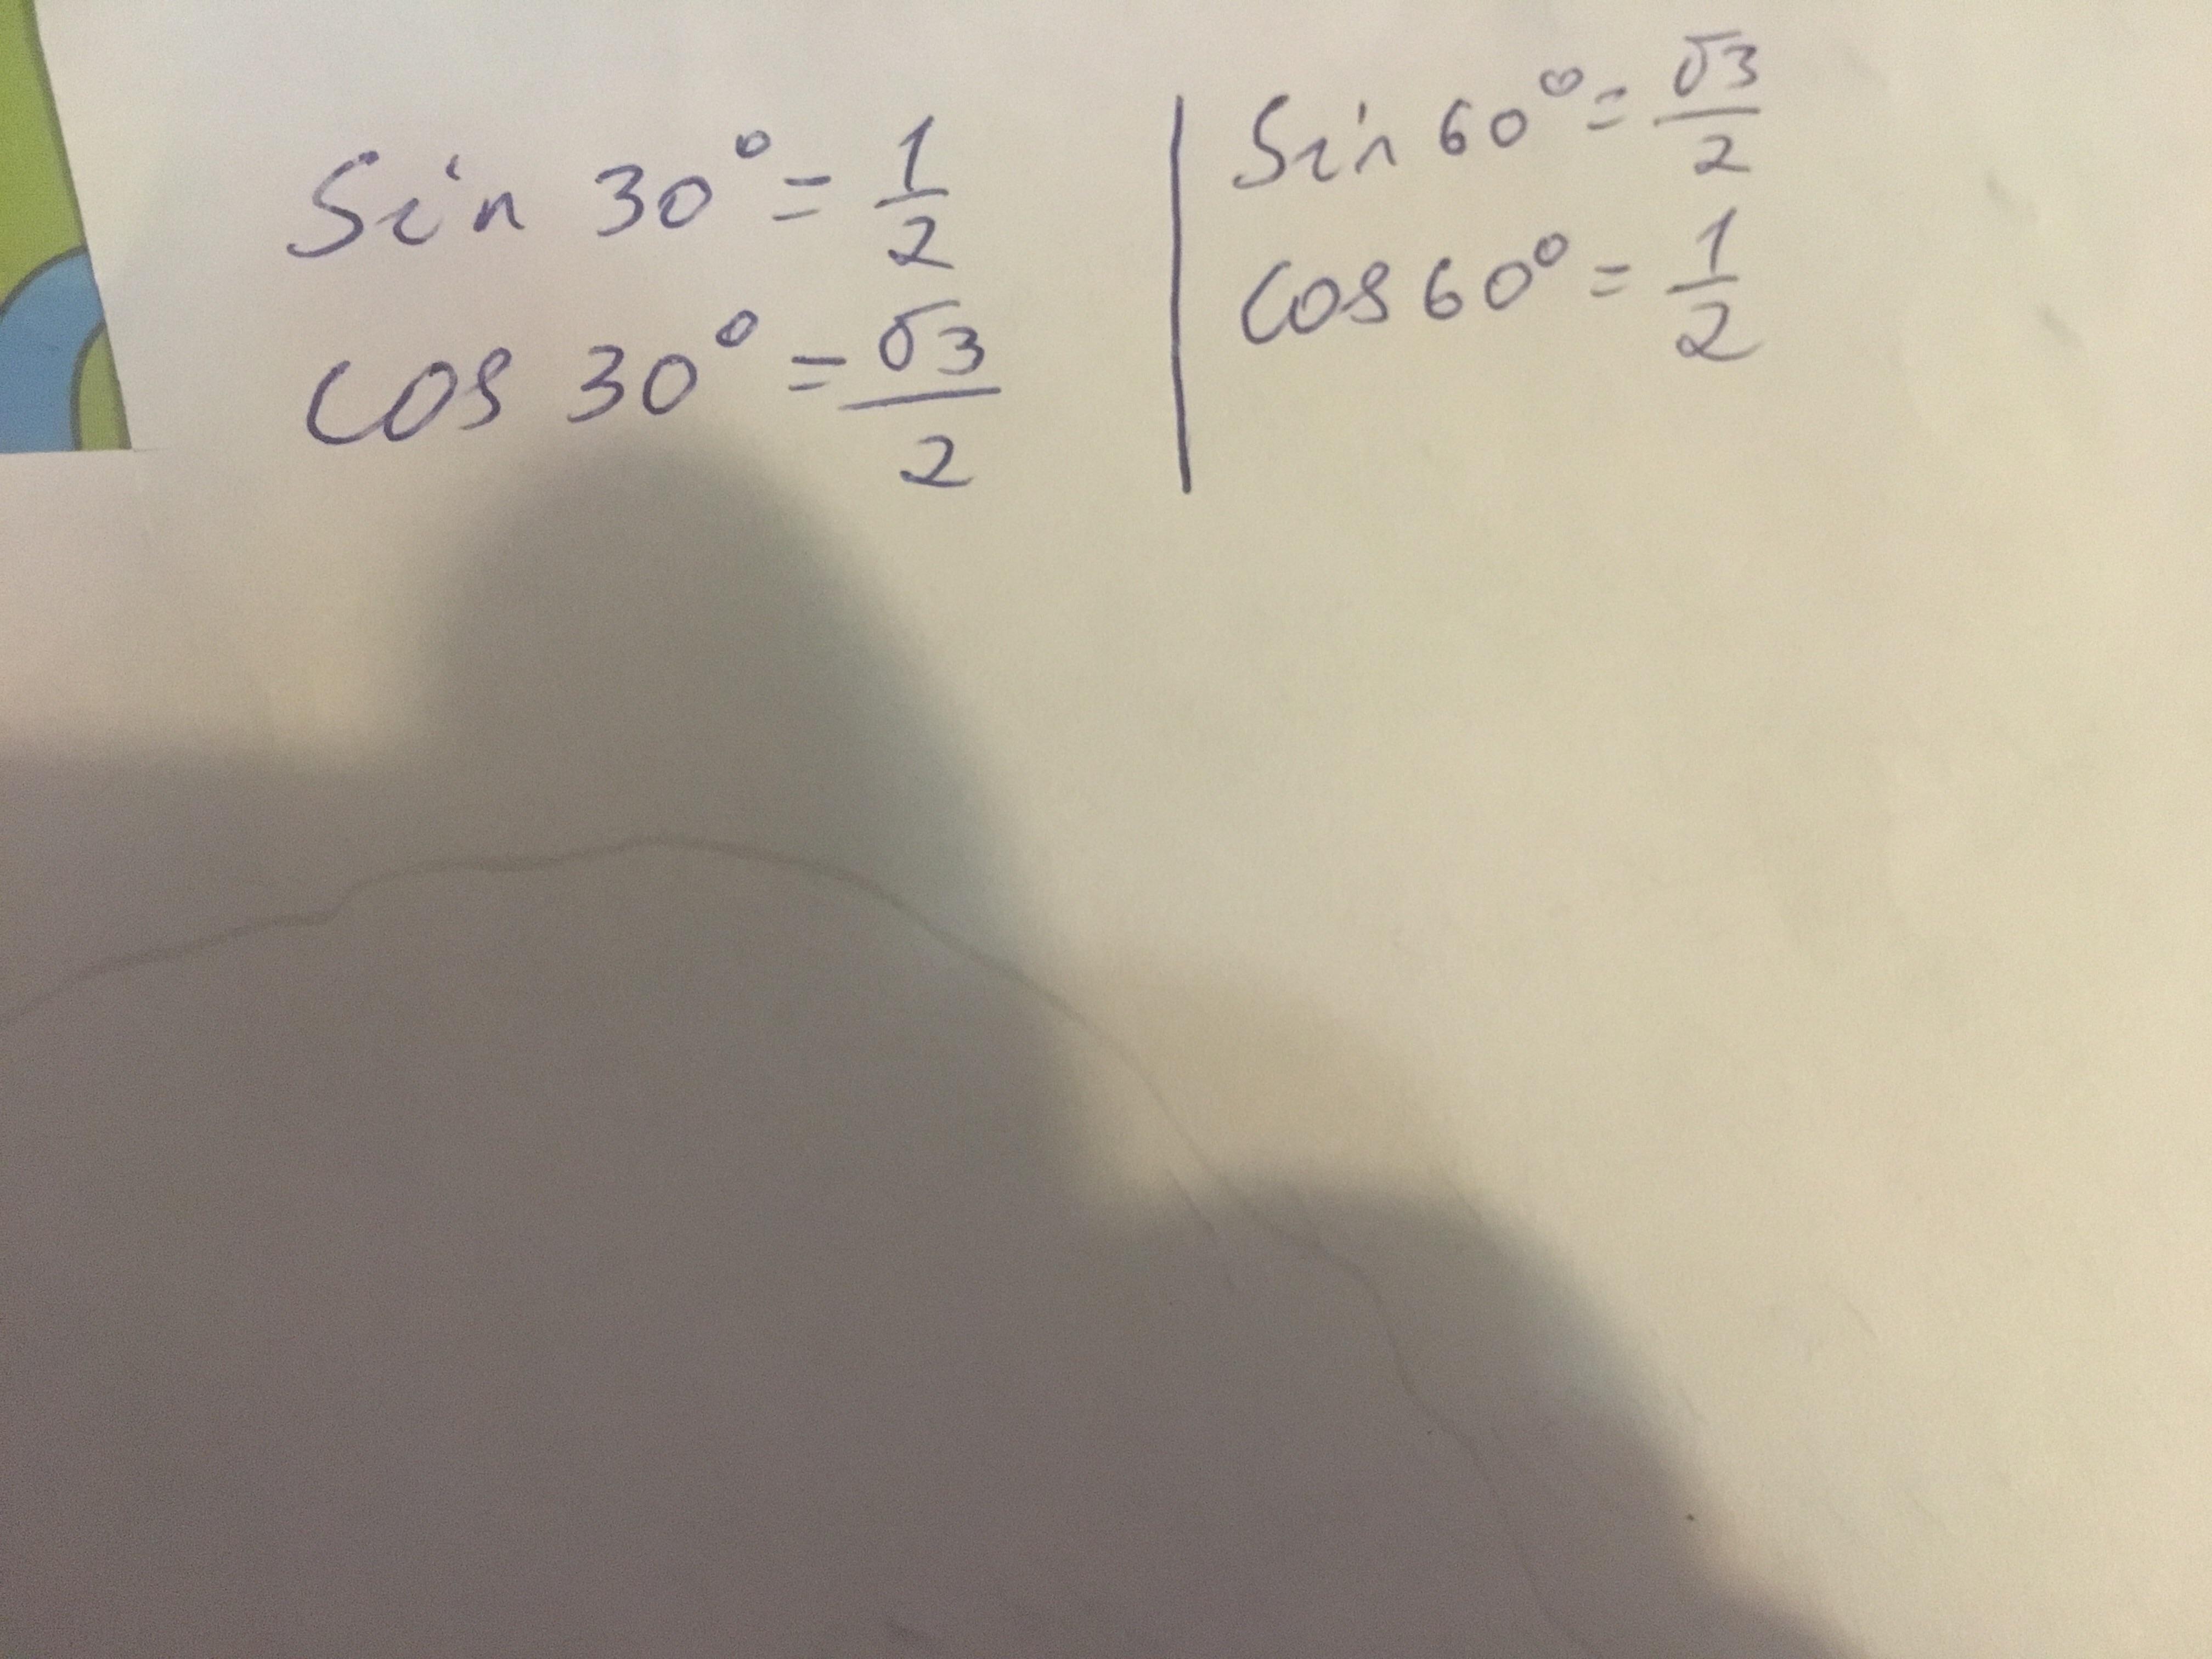 Sin 30° = 1/2
cos 30° = √3/2
Sin 60° = √3/2
cos 60° = 1/2